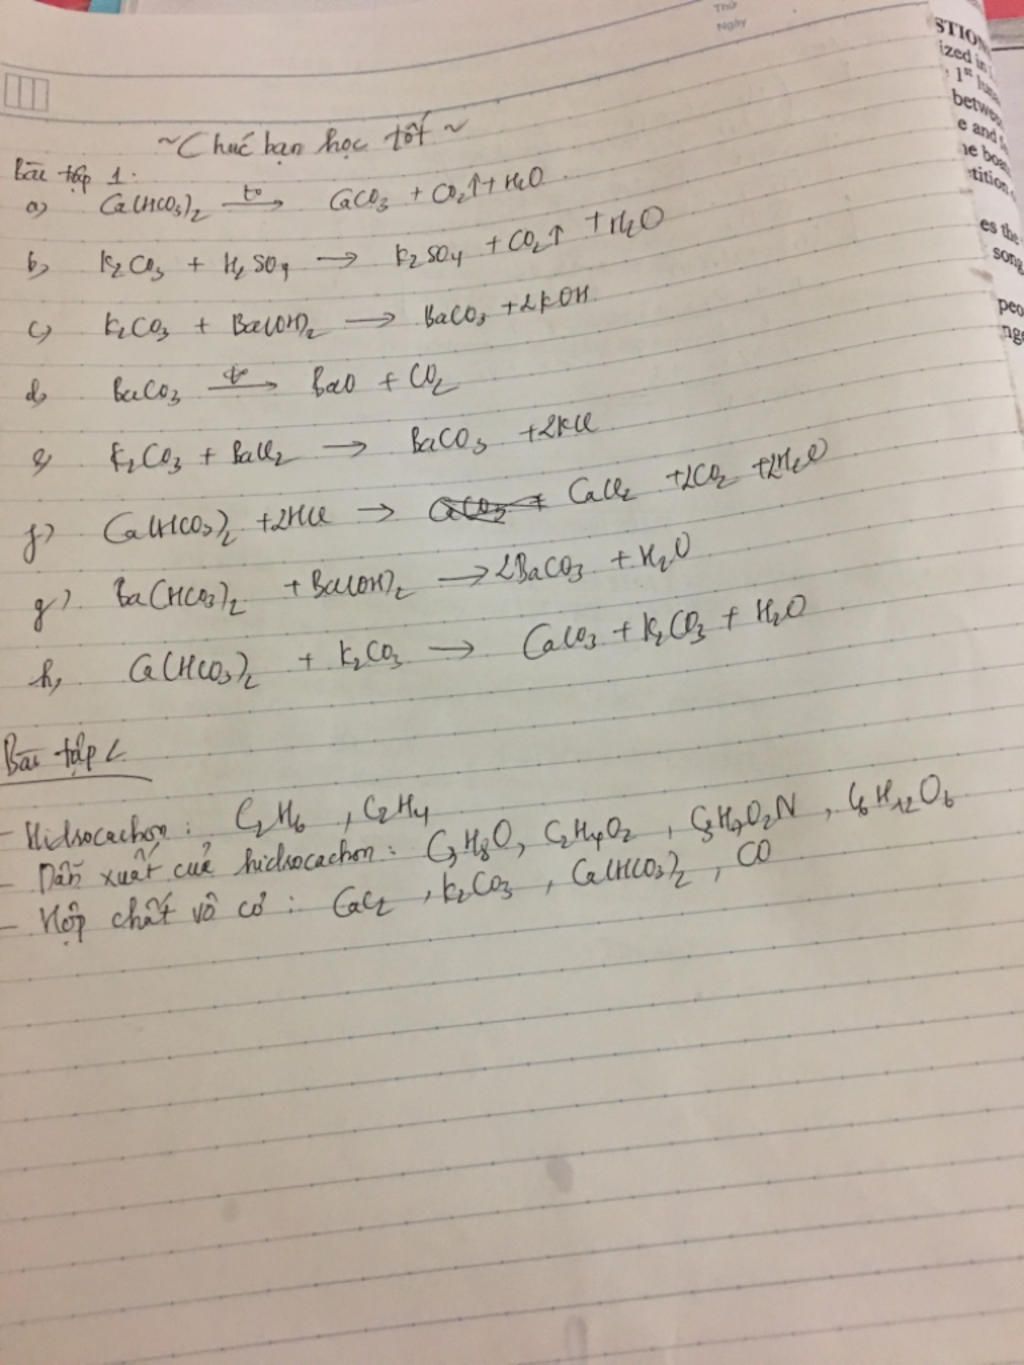 Thứ
Ngày
~Chúc bạn học tốt~
Bài tập 1:
a) Ca(HCO3)2 t° → CaCO3 + CO2↑ + H2O
b) K2CO3 + H2SO4 → K2SO4 + CO2↑ + H2O
c) K2CO3 + Ba(OH)2 → BaCO3 + 2KOH
d) BaCO3 t° → BaO + CO2
e) K2CO3 + BaCl2 → BaCO3 + 2KCl
f) Ca(HCO3)2 + 2HCl → CaCl2 + 2CO2 + 2H2O
g) Ba(HCO3)2 + Ba(OH)2 → 2BaCO3 + H2O
h) Ca(HCO3)2 + K2CO3 → CaCO3 + K2CO3 + H2O
Bài tập 2
- Hidrocacbon: C2H6, C2H4
- Dẫn xuất của hidrocacbon: C3H8O, C2H4O2, O2N, C6H12O6
- Hợp chất vô cơ: K2CO3, Ca(HCO3)2, CO
STION
ized in
1st
betwe
e and
ne boa
tition
es the
song
peo
nge